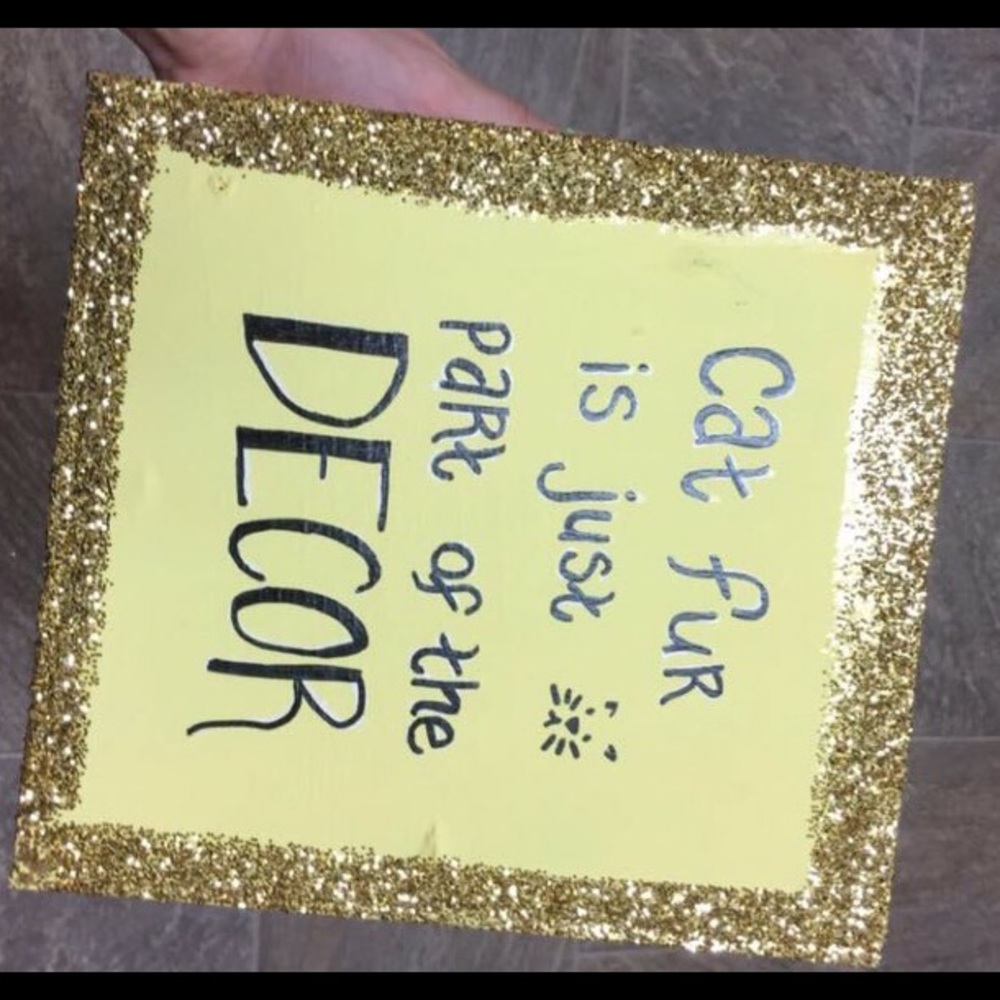 Cat fuR
is just
paRt of the
DECOR